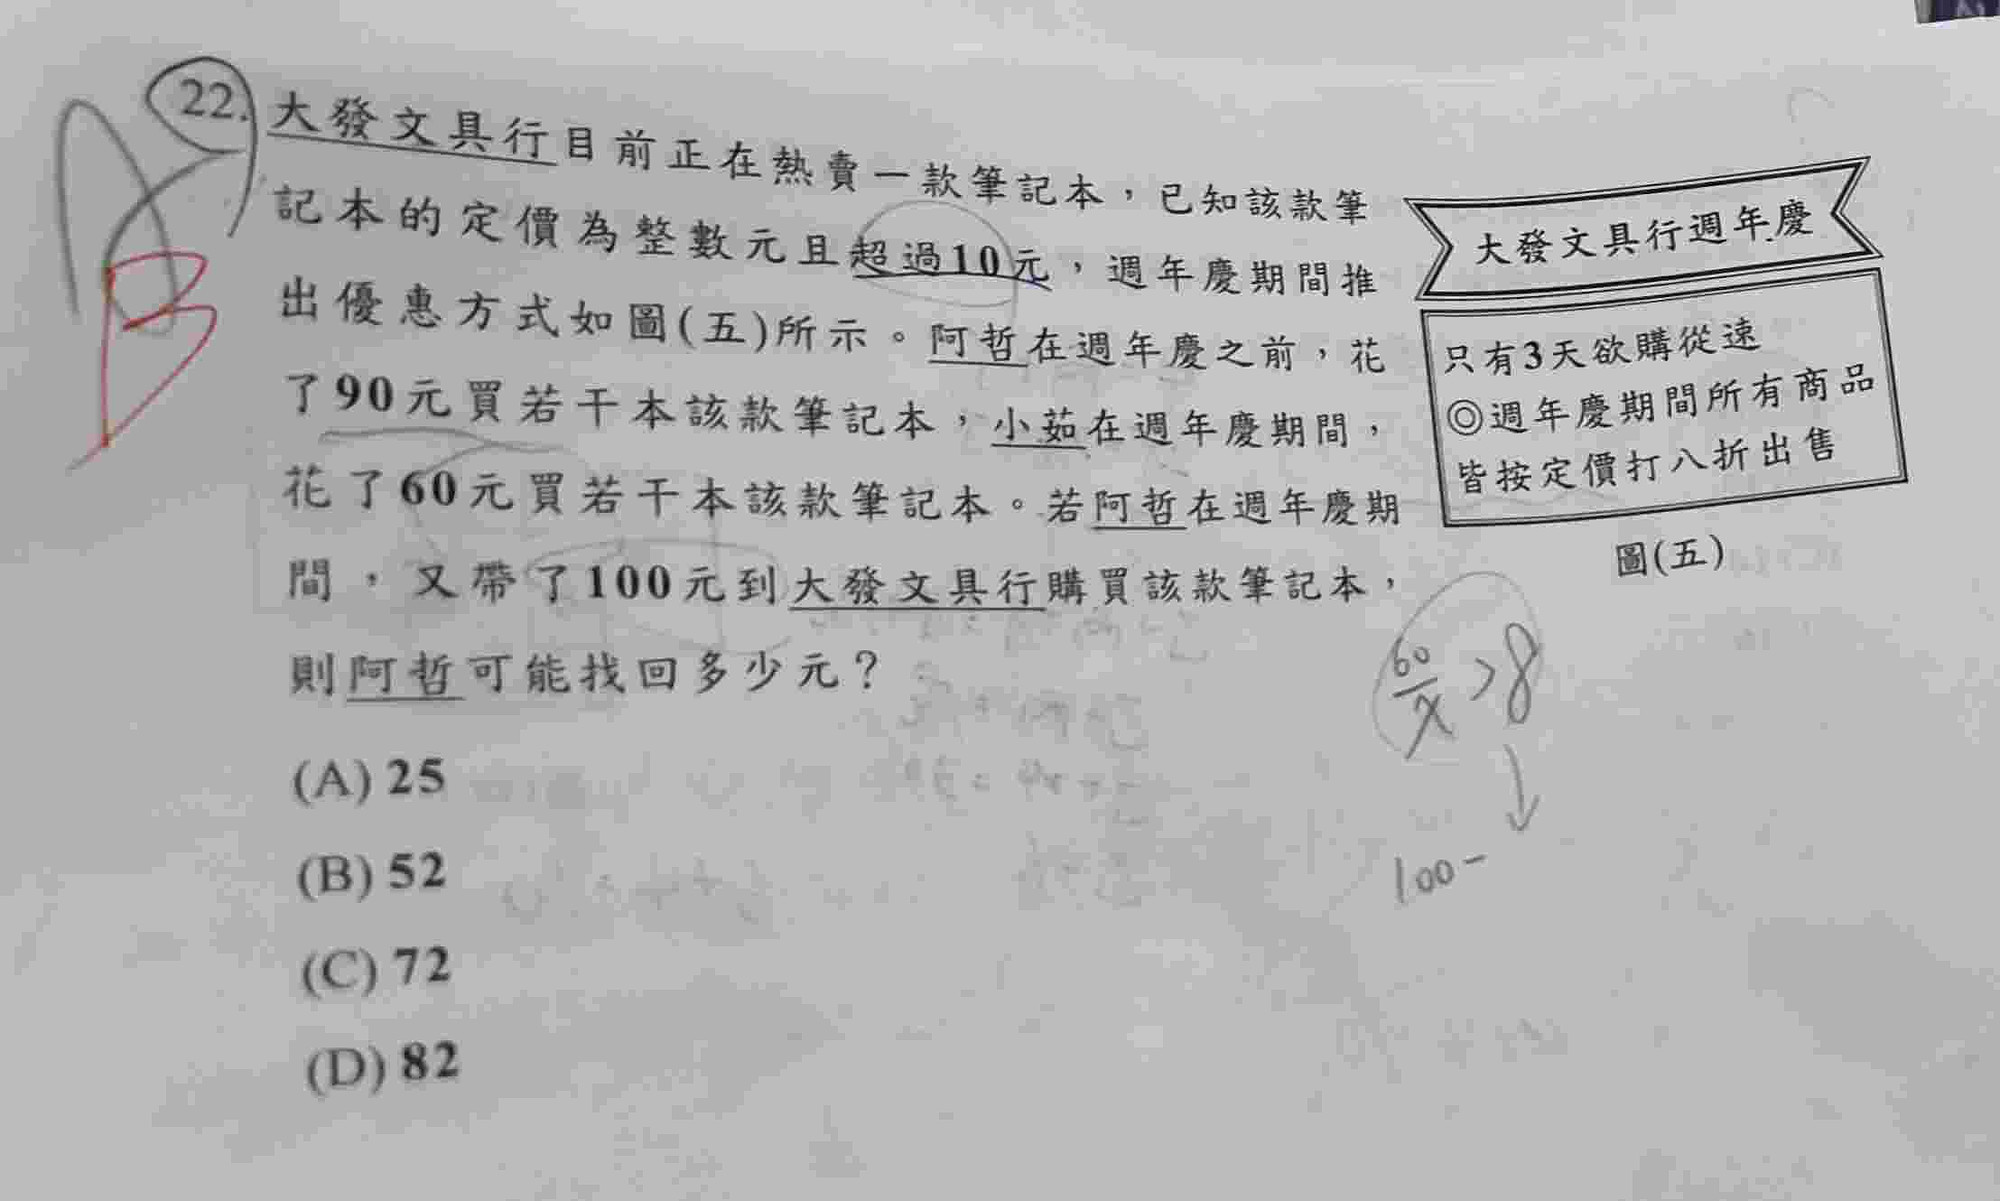 22. 大發文具行目前正在熱賣一款筆記本，已知該款筆
記本的定價為整數元且超過10元，週年慶期間推
出優惠方式如圖(五)所示。阿哲在週年慶之前，花
了90元買若干本該款筆記本，小茹在週年慶期間，
花了60元買若干本該款筆記本。若阿哲在週年慶期
間，又帶了100元到大發文具行購買該款筆記本，
則阿哲可能找回多少元？
(A) 25
(B) 52
(C) 72
(D) 82
大發文具行週年慶
只有3天欲購從速
◎週年慶期間所有商品
皆按定價打八折出售
圖(五)
60/x > 8
100-
B